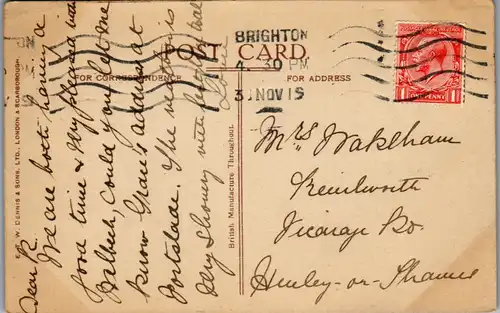 BRIGHTON
4. 30 PM
3 NOV 19
POST CARD.
FOR CORRESPONDENCE
FOR ADDRESS
ONE PENNY
E.T.W. DENNIS & SONS, LTD., LONDON & SCARBOROUGH.
British Manufacture Throughout.
Dear
We are both having a
good time & My pleased with
could you let me
know Grace's address at
Portslade. The weather is
Very Showery with bright
Love
Mrs Wakeham
Kenilworth
Vicarage Rd.
Henley-on-Thames